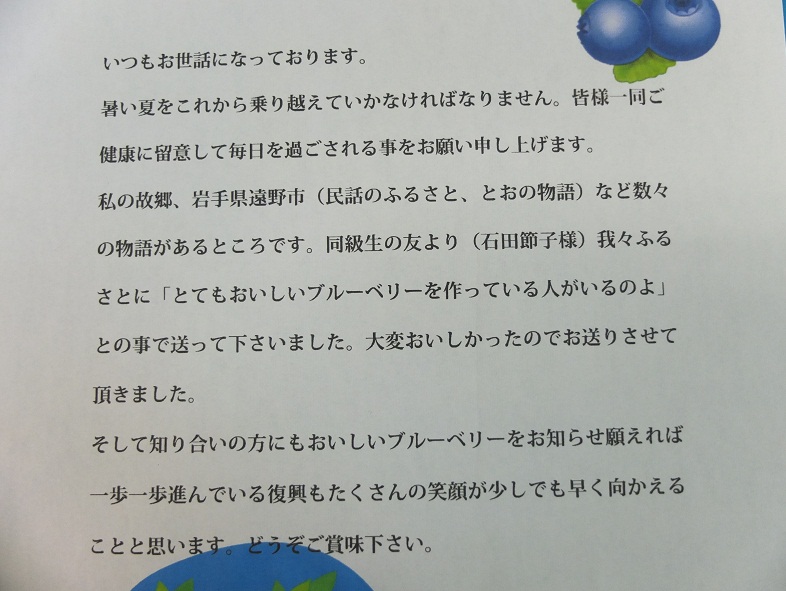 いつもお世話になっております。
暑い夏をこれから乗り越えていかなければなりません。皆様一同ご
健康に留意して毎日を過ごされる事をお願い申し上げます。
私の故郷、岩手県遠野市（民話のふるさと、とおの物語）など数々
の物語があるところです。同級生の友より（石田節子様）我々ふる
さとに「とてもおいしいブルーベリーを作っている人がいるのよ」
との事で送って下さいました。大変おいしかったのでお送りさせて
頂きました。
そして知り合いの方にもおいしいブルーベリーをお知らせ願えれば
一歩一歩進んでいる復興もたくさんの笑顔が少しでも早く向かえる
ことと思います。どうぞご賞味下さい。